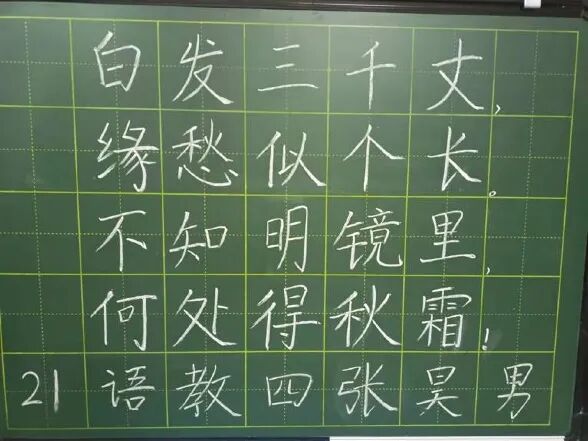 白发三千丈,
缘愁似个长。
不知明镜里,
何处得秋霜!
21语教四张昊男